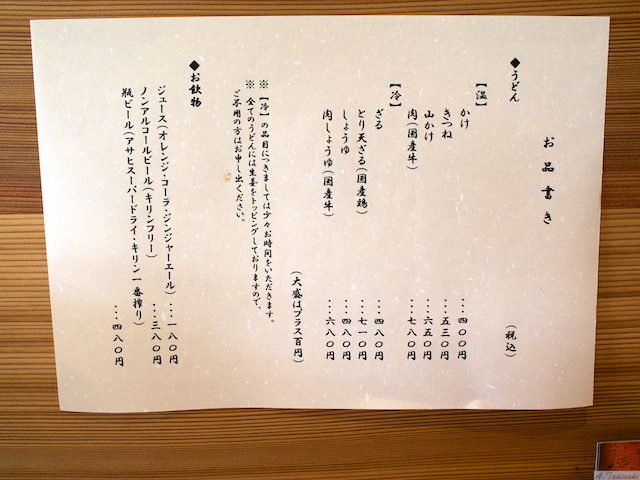 お品書き
◆うどん (税込)
【温】
かけ ・・・四〇〇円
きつね ・・・五三〇円
山かけ ・・・六五〇円
肉(国産牛) ・・・七八〇円
【冷】
ざる ・・・四八〇円
とり天ざる(国産鶏) ・・・七一〇円
しょうゆ ・・・四八〇円
肉しょうゆ(国産牛) ・・・六八〇円
(大盛はプラス百円)
※【冷】の品目につきましては少々お時間をいただきます。
※ 全てのうどんには生姜をトッピングしておりますので、
ご不用の方はお申し出ください。
◆お飲物
ジュース(オレンジ・コーラ・ジンジャーエール) ・・・一八〇円
ノンアルコールビール(キリンフリー) ・・・三八〇円
瓶ビール(アサヒスーパードライ・キリン一番搾り) ・・・四八〇円